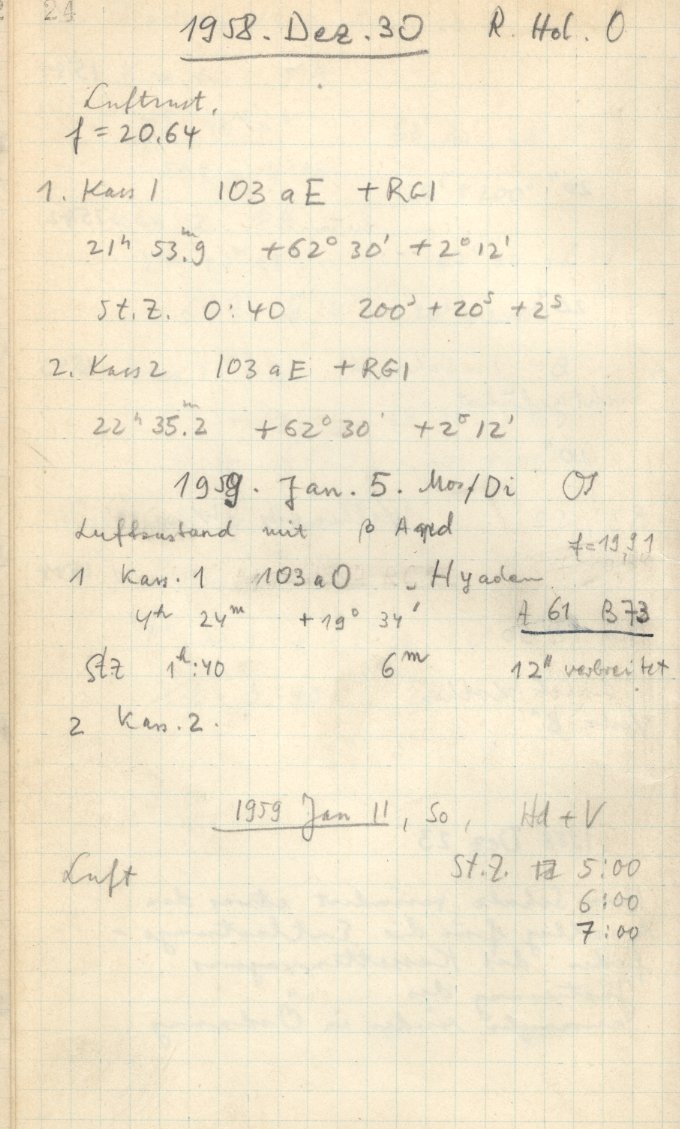 24
1958. Dez. 30 R. Hol. O
Luftzust.
f = 20.64
1. Kass 1 103 a E + RG1
21ʰ 53.ᵐ9 +62° 30' + 2° 12'
St.Z. 0:40 200ˢ + 20ˢ + 2ˢ
2. Kass 2 103 a E + RG1
22ʰ 35.ᵐ2 +62° 30' + 2° 12'
1959. Jan. 5. Mo/Di
Luftzustand mit β
f = 19,91
1 Kass. 1 103 a O Hyaden
4ʰ 24ᵐ +19° 34' A 61 B 73
StZ 1ʰ:40 6ᵐ 12" verbreitet
2 Kass. 2.
1959 Jan 11, So, Hd + V
Luft St.Z. 5:00
6:00
7:00